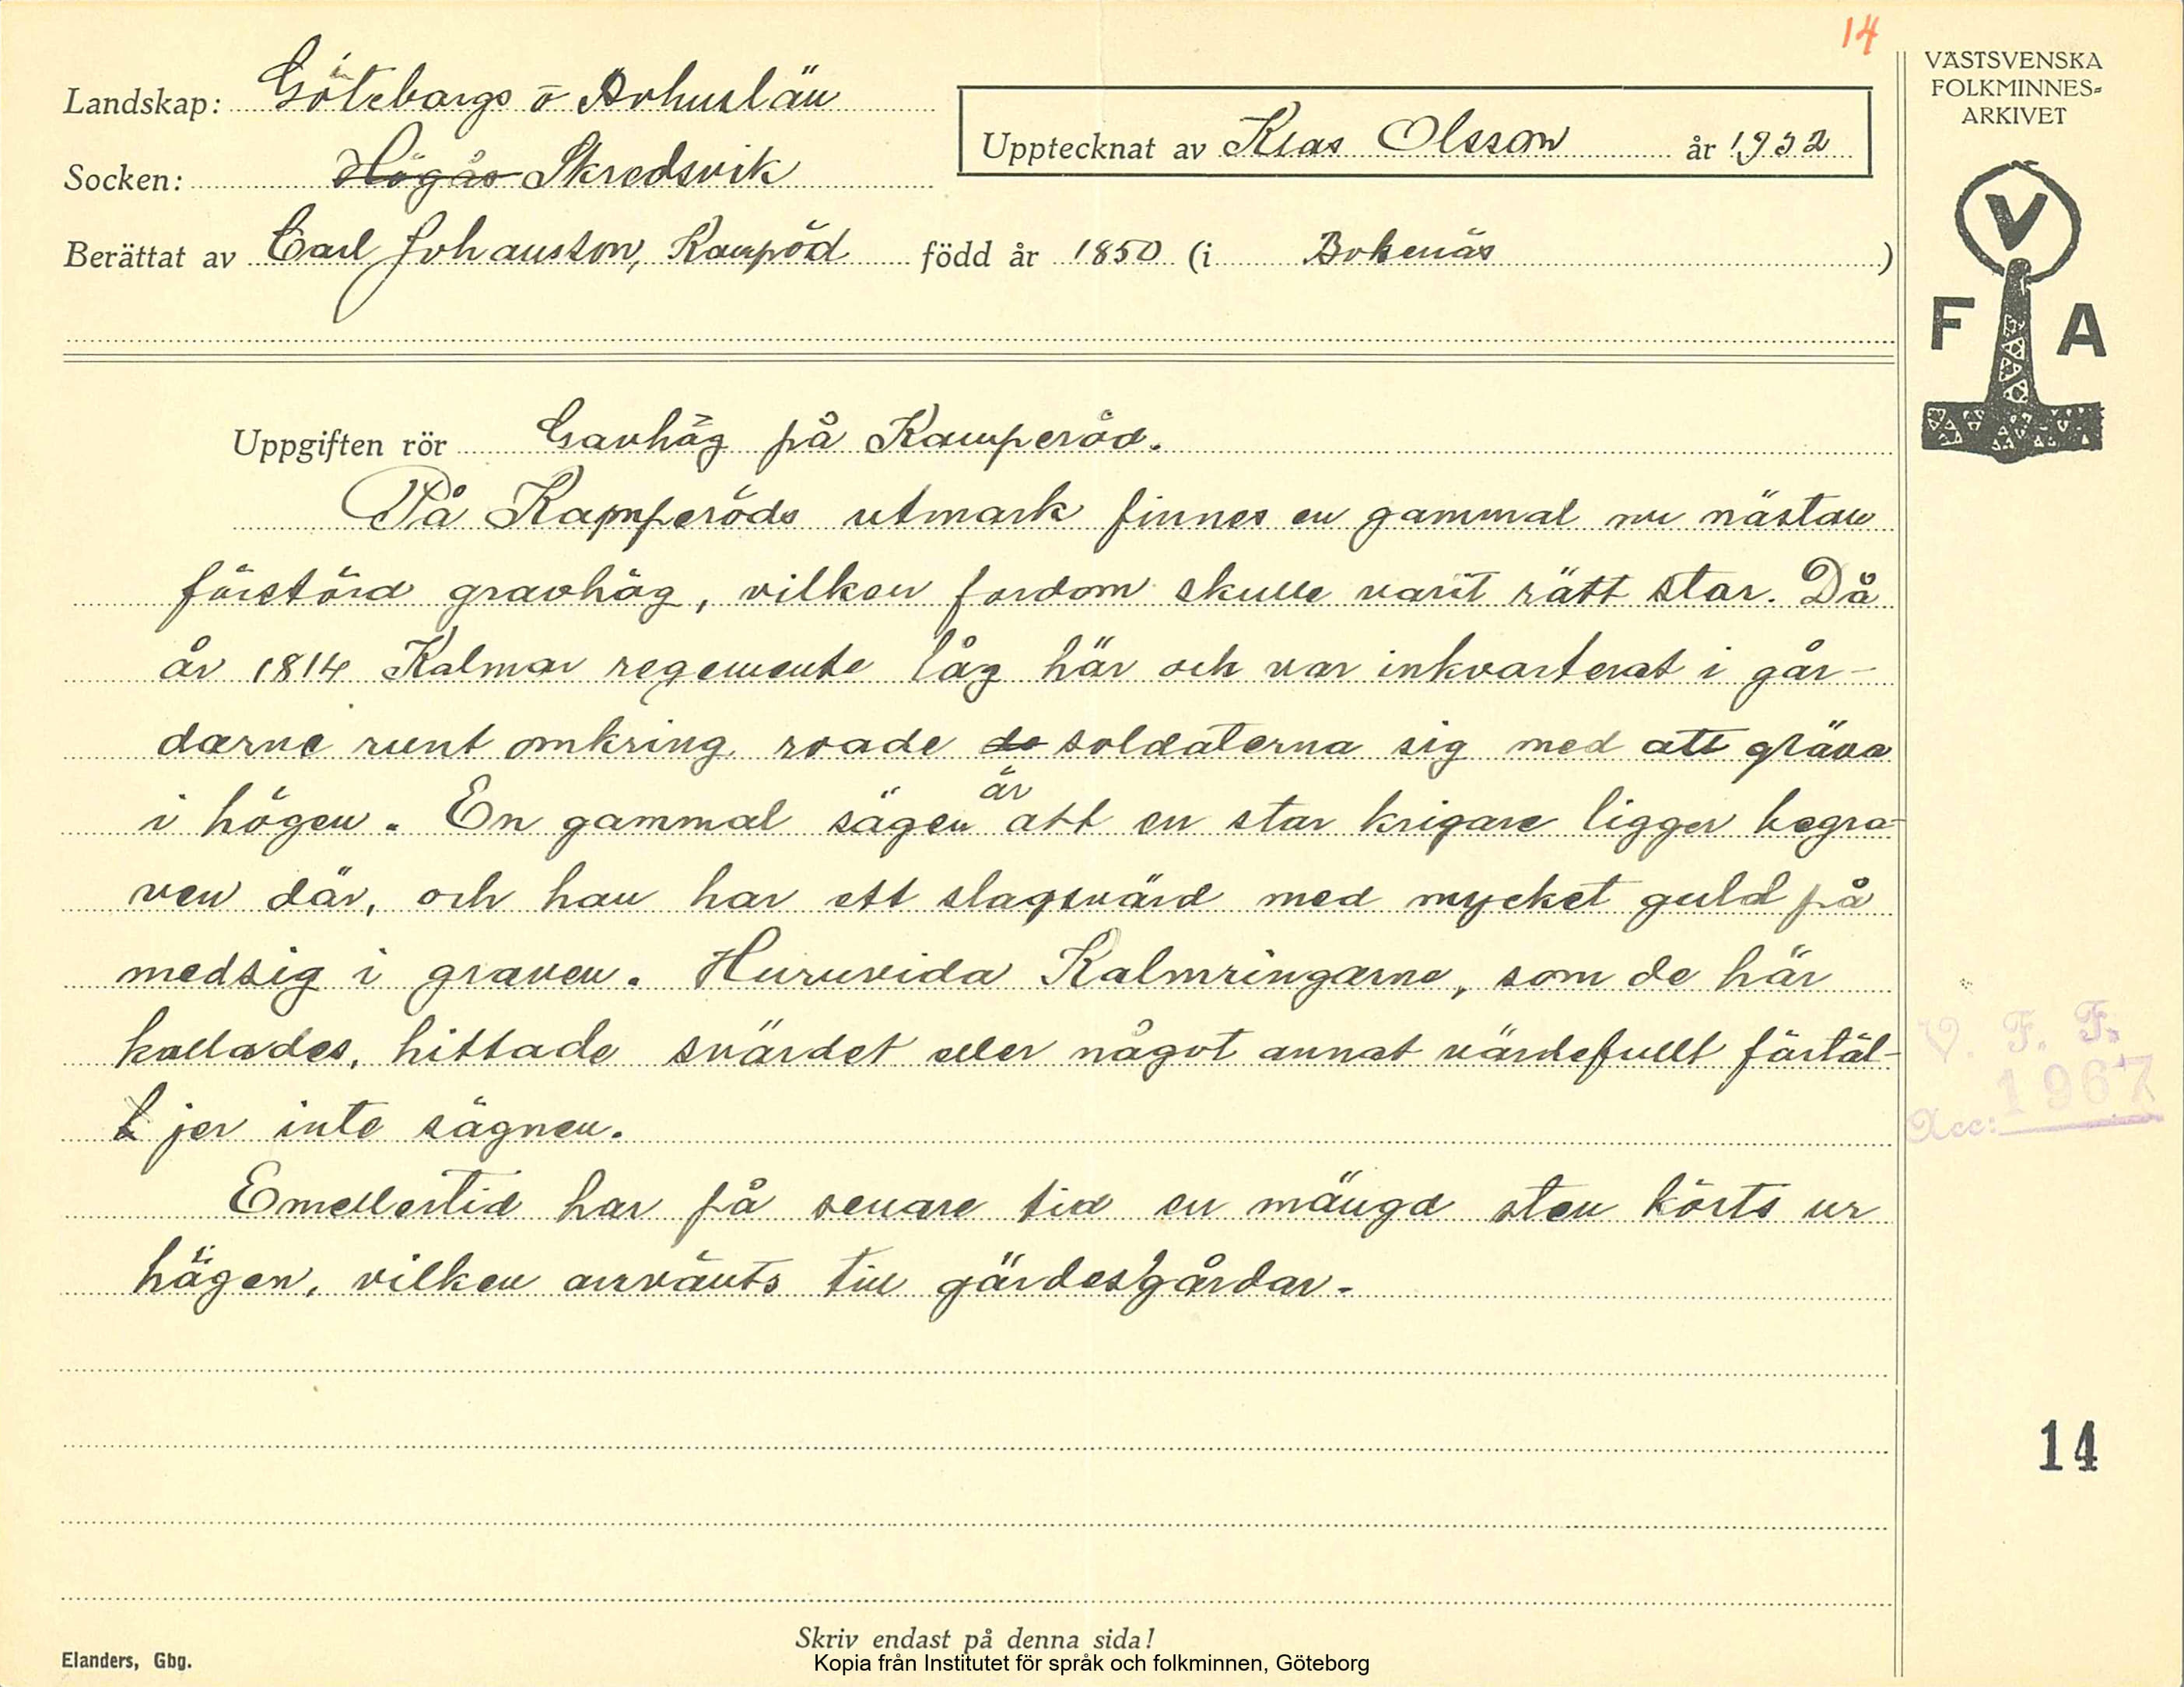 14
Landskap: Götebargs o Bohuslän
Socken: Högås Skredsvik
Upptecknat av Klas Olsson år 1932
Berättat av Carl Johansson, Kamperöd född år 1850 (i Bokenäs)
Uppgiften rör Gravhög på Kamperöd.
På Kamperöds utmark finnes en gammal nu nästan
förstörd gravhög, vilken fordom skulle varit rätt stor. Då
år 1814 Kalmar regemente låg här och var inkvarterat i går-
darne runt omkring roade de soldaterna sig med att gräva
i högen. En gammal sägen är att en stor krigare ligger begra-
ven där, och han har ett slagsvärd med mycket guld på
medsig i graven. Huruvida Kalmringarne, som de här
kallades, hittade svärdet eller något annat värdefullt förtäl-
jer inte sägnen.
Emellertid har på senare tid en mängd sten körts ur
högen, vilken använts till gärdesgårdar.
Skriv endast på denna sida!
Elanders, Gbg.
Kopia från Institutet för språk och folkminnen, Göteborg
VÄSTSVENSKA
FOLKMINNES-
ARKIVET
V
F A
V. F. F.
1967
Acc:
14